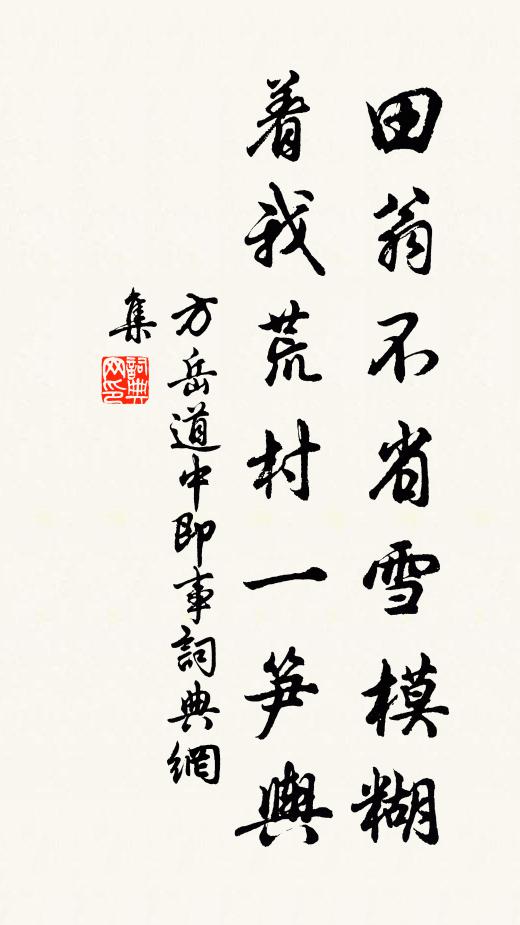 田翁不省雪模糊
着我荒村一笋舆
方岳道中即事詞典網
集
詞典网印